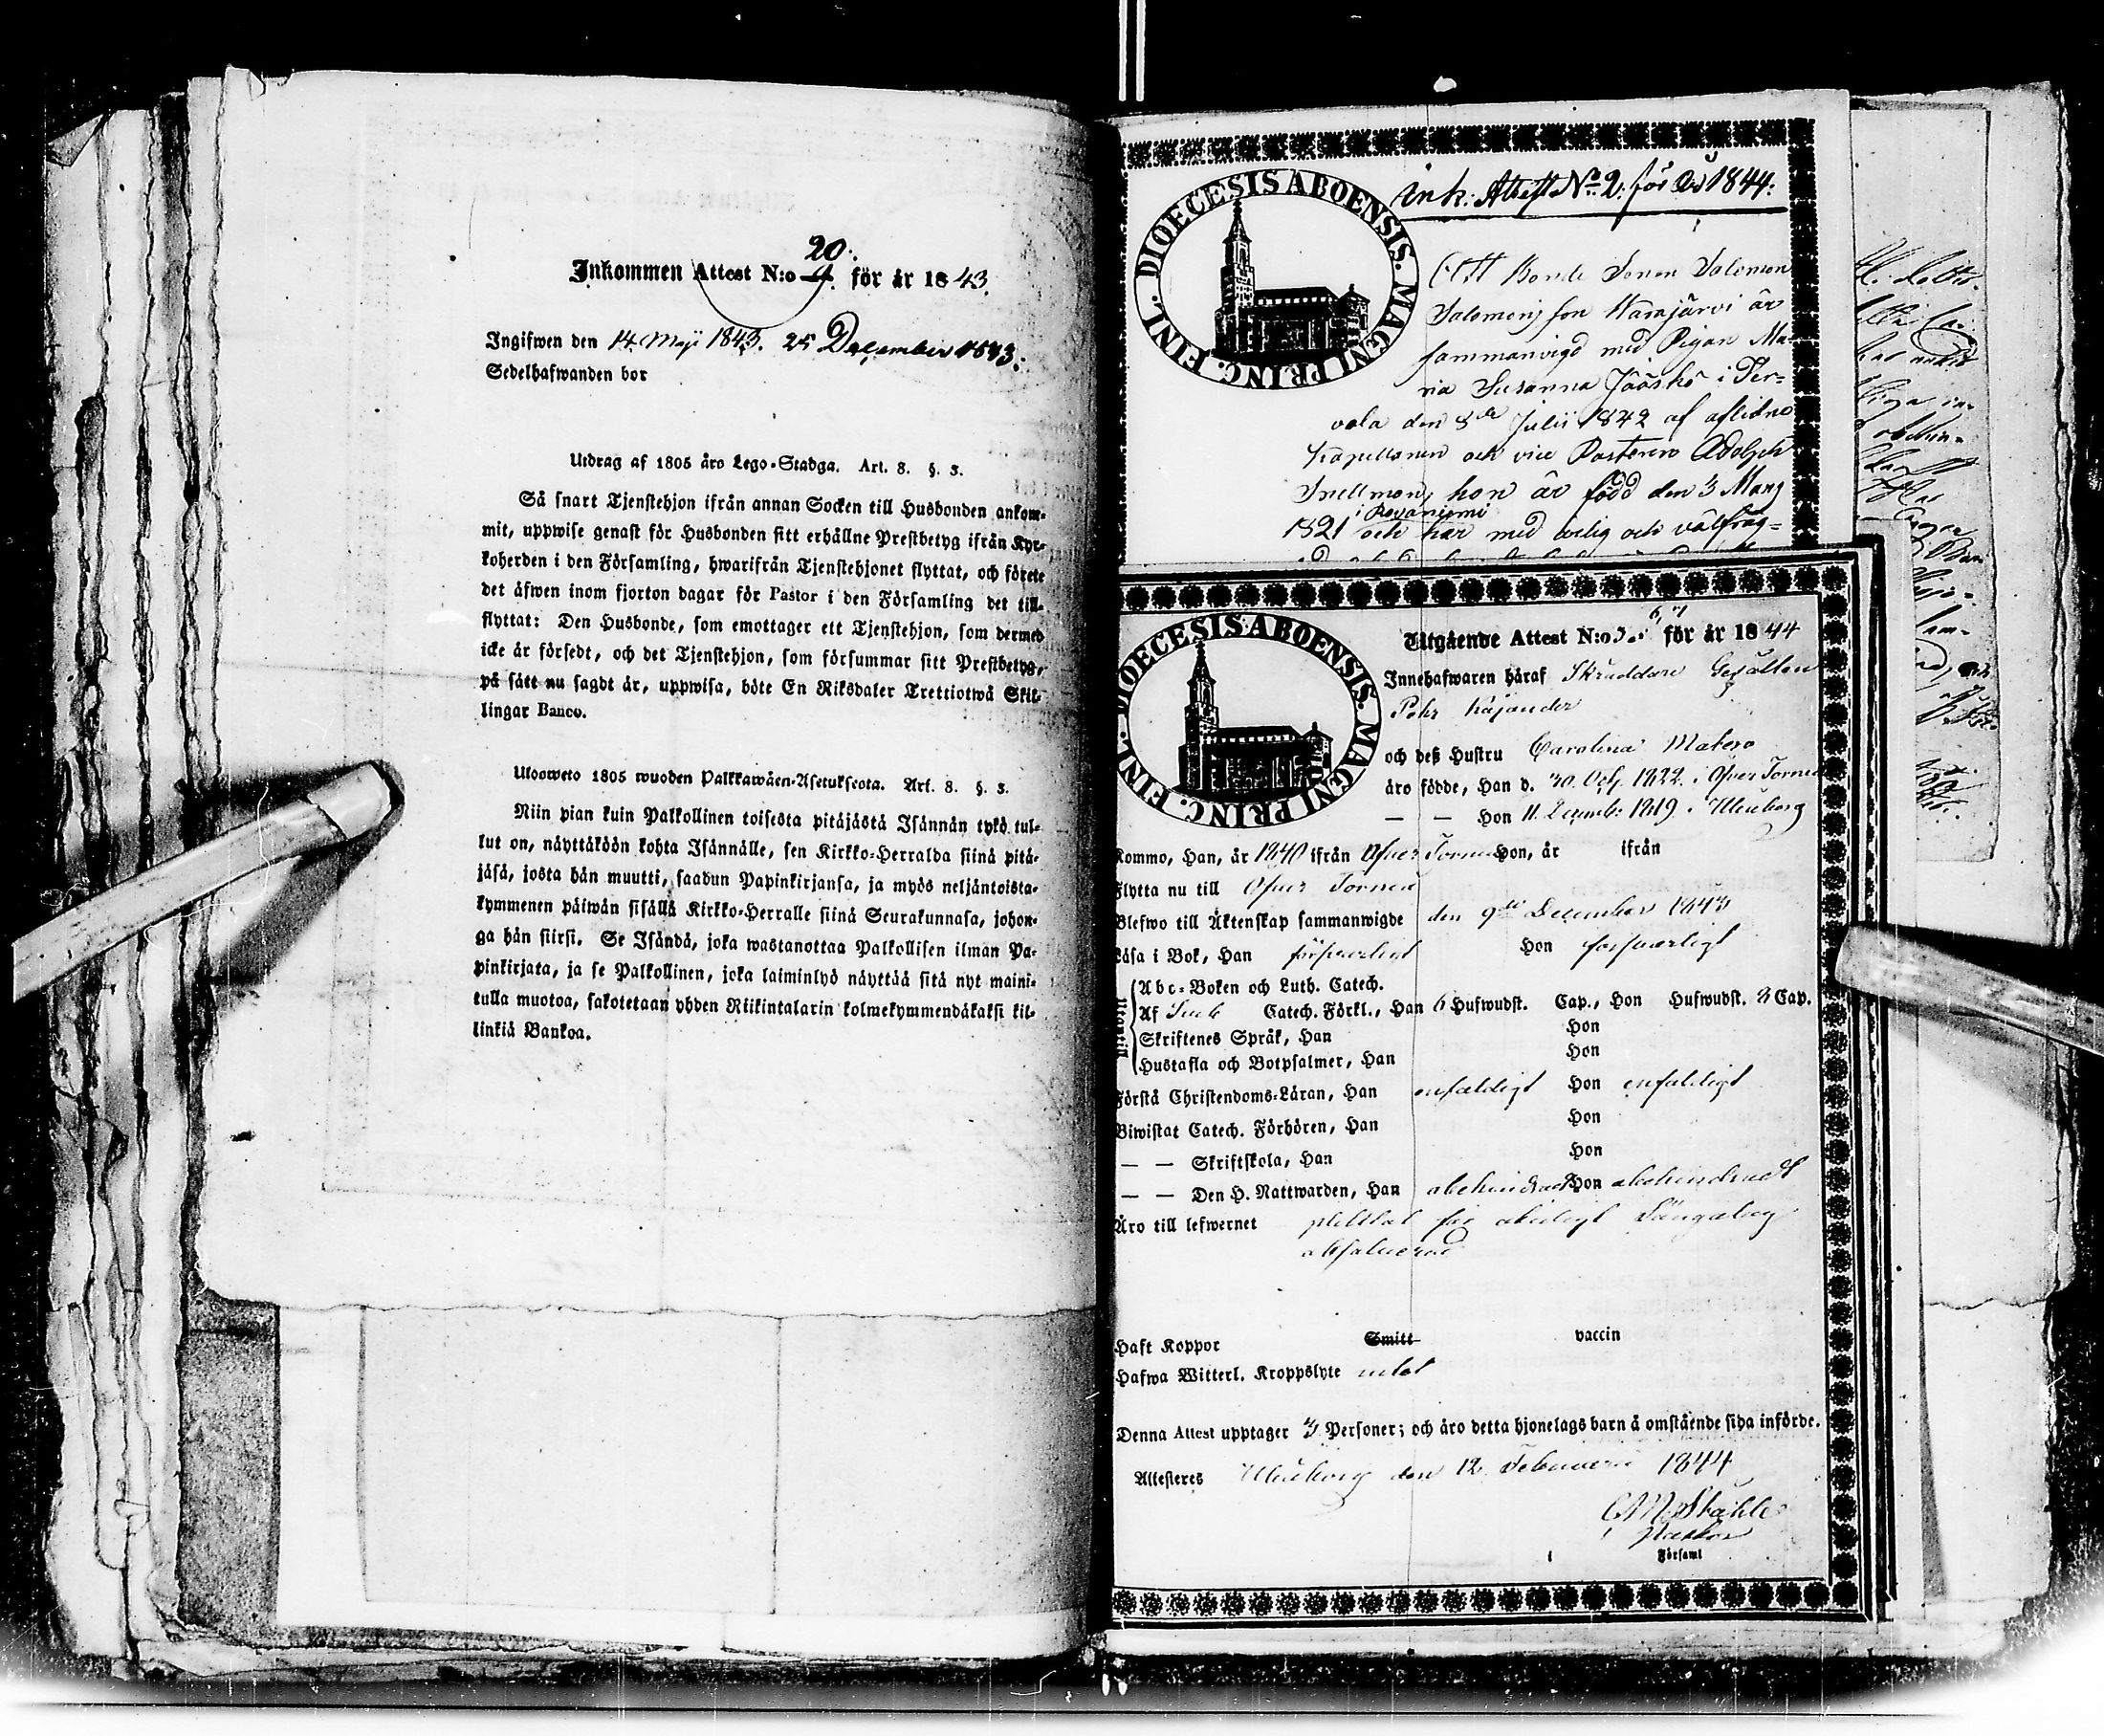 20.
Inkommen Attest N:o 9. för år 1843.
Ingifwen den 14 Maji 1843. 25 December 1843.
Sedelhafwanden bor
Utdrag af 1805 års Lego-Stadga. Art. 8. §. 3.
Så snart Tjenstehjon ifrån annan Socken till Husbonden ankom-
mit, uppwise genast för Husbonden sitt erhållne Prestbetyg ifrån Kyr-
koherden i den Församling, hwarifrån Tjenstehjonet flyttat, och förete
det äfwen inom fjorton dagar för Pastor i den Församling det till-
flyttat: Den Husbonde, som emottager ett Tjenstehjon, som dermed
icke är försedt, och det Tjenstehjon, som försummar sitt Prestbetyg,
på sätt nu sagdt är, uppwisa, böte En Riksdaler Trettiotwå Skil-
lingar Banco.
Ulosweto 1805 wuoden Palkkawäen-Asetuksesta. Art. 8. §. 3.
Niin pian kuin Palkollinen toisesta pitäjästä Isännän tykö tul-
lut on, näyttäköön kohta Isännälle, sen Kirkko-Herralda siinä pitä-
jäsä, josta hän muutti, saadun Papinkirjansa, ja myös neljäntoista-
kymmenen päiwän sisällä Kirkko-Herralle siinä Seurakunnasa, johon-
ga hän siirsi. Se Isändä, joka wastanottaa Palkollisen ilman Pa-
pinkirjata, ja se Palkollinen, joka laiminlyö näyttää sitä nyt maini-
tulla muotoa, sakotetaan yhden Riikintalarin kolmekymmendäkaksi kil-
linkiä Bankoa.
DIOECESIS ABOENSIS. MAGNI PRINC. FINL.
Ink: Attest No 2. för år 1844.
Att Bonde Sonen Salomon
Salomons son Karajärvi är
sammanvigd med Pigan Ma-
ria Susanna Jääskö i Ter-
vola den 8de Julii 1842 af aflidne
Kapellanen och vice Pastoren Adolph
Snellman, hon är född den 3 Mars
i Rovaniemi
1821 och har med ärlig och välfräg-
DIOECESIS ABOENSIS. MAGNI PRINC. FINL.
Utgående Attest N:o för år 1844
Innehafwaren häraf Skräddare Gesällen
Pehr Kajander
och deß Hustru Carolina Matero
äro födde, Han d. 30 Oct. 1822 i Öfver Torneå
— — Hon 11 Decemb: 1819 i Uleåborg
Kommo, Han, år 1840 ifrån Öfver Torneå Hon, år ifrån
Flytta nu till Öfver Torneå
Blefwo till Äktenskap sammanwigde den 9de December 1843
Läsa i Bok, Han försvarligt Hon försvarligt
Utantill
Abc-Boken och Luth. Catech.
Af Catech. Förkl., Han 6 Hufwudst. Cap., Hon Hufwudst. 3 Cap.
Skriftenes Språk, Han Hon
Hustafla och Botpsalmer, Han Hon
Förstå Christendoms-Läran, Han enfaldigt Hon enfaldigt
Biwistat Catech. Förhören, Han Hon
— — Skriftskola, Han Hon
— — Den H. Nattwarden, Han obehindrad Hon obehindrad
Äro till lefwernet för oärligt Sängalag
absolverad
Haft Koppor Smitt vaccin
Hafwa Witterl. Kroppslyte intet
Denna Attest upptager 3 Personer; och äro detta hjonelags barn å omstående sida införde.
Attesteres Uleåborg den 12 Februarii 1844
C M Ståhle
Pastor
i Församl